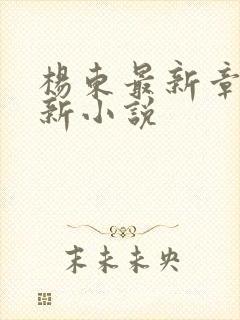 楊東最新章
新小說
末未未央